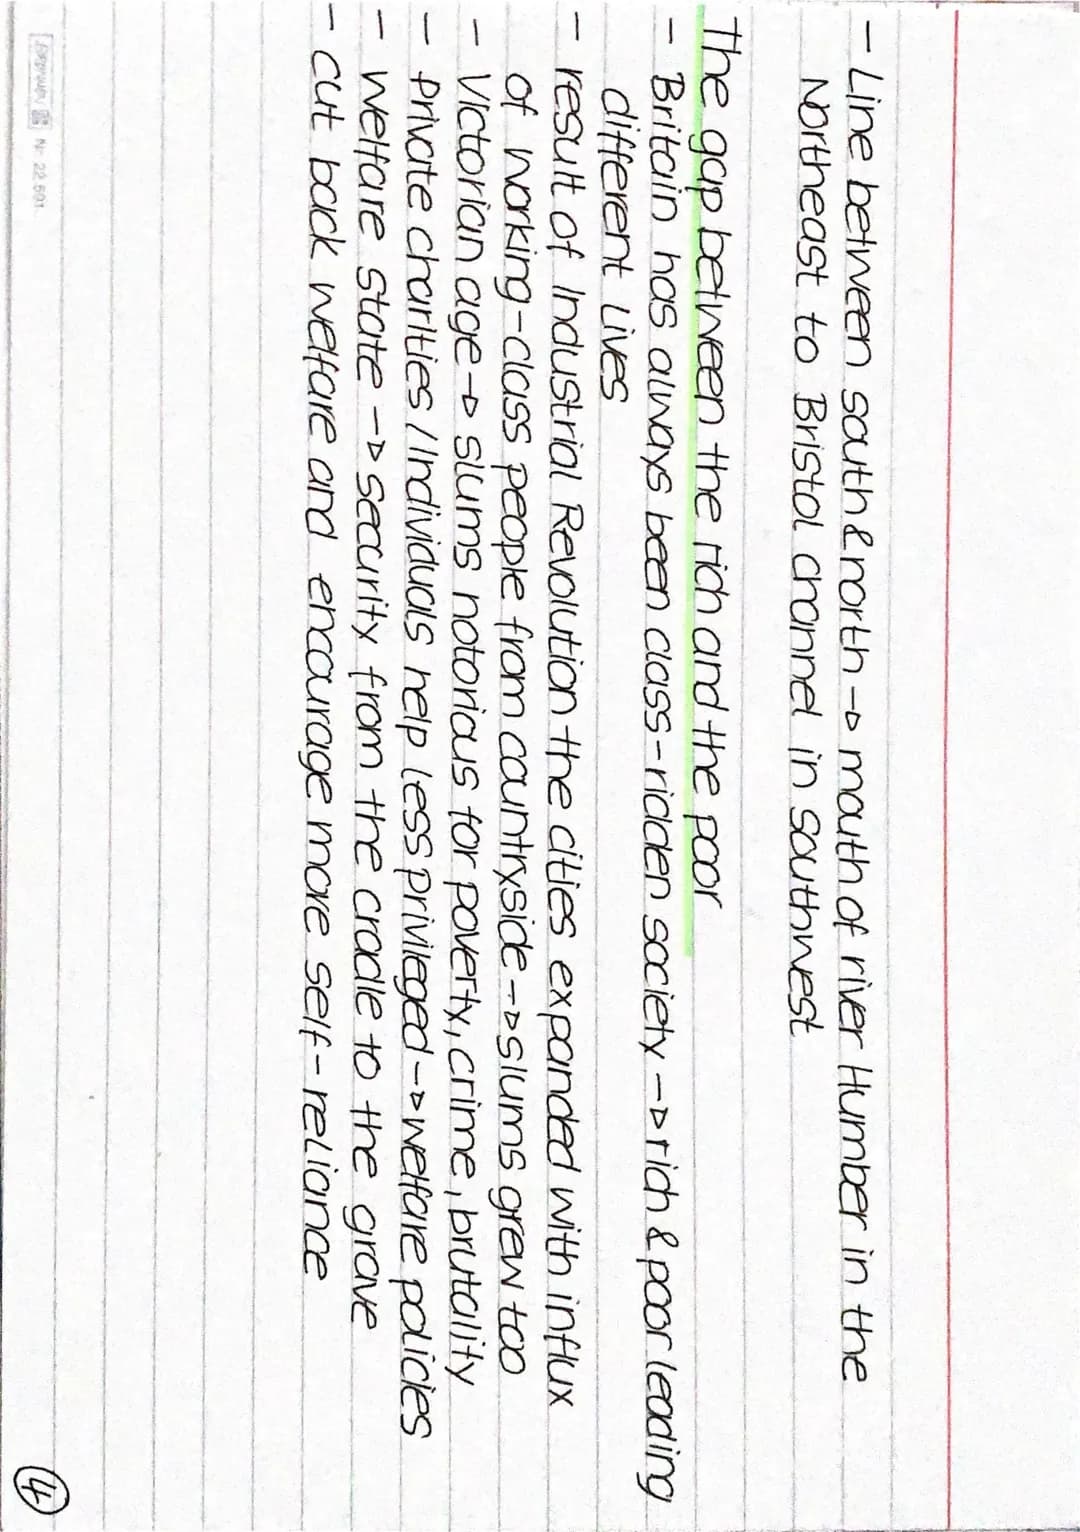 - Line between south & north → mouth of river Humber in the
Northeast to Bristol channel in southwest
The gap between the rich and the poor
- Britain has always been class-ridden society → rich & poor leading
different lives
- result of Industrial Revolution the cities expanded with influx
of working-class people from countryside → slums grew too
- Victorian age → slums notorious for poverty, crime, brutality
- Private charities / Individuals help less privileged → welfare policies
- welfare state → security from the cradle to the grave
- cut back welfare and encourage more self-reliance
BRUNNEN Nr. 22 591
4